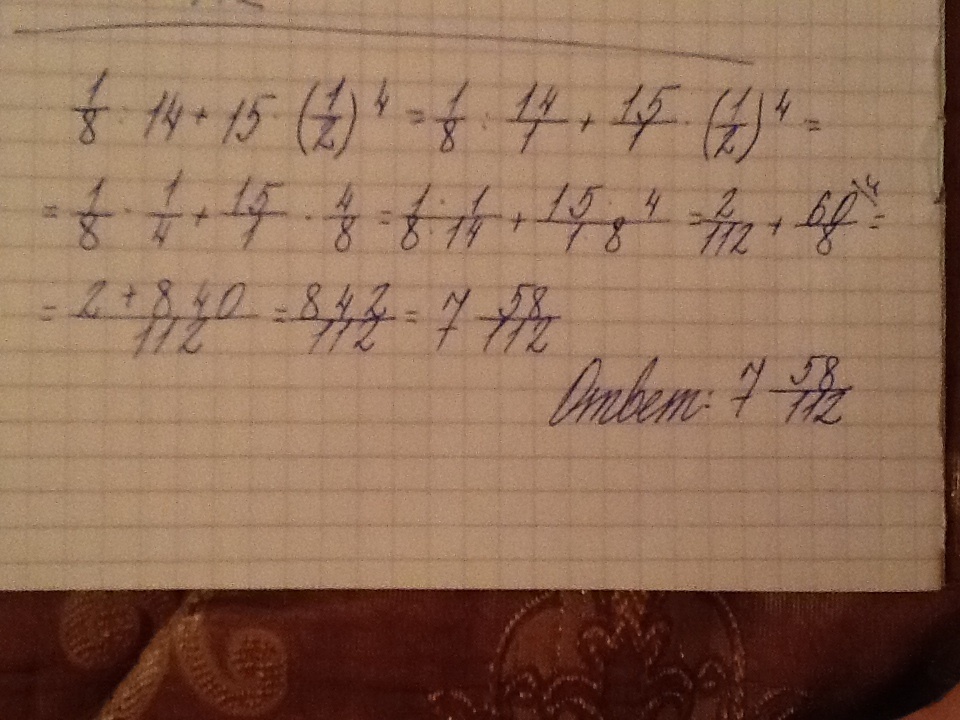 1/8 : 14 + 15 · (1/2)^4 = 1/8 : 14/1 + 15/1 · (1/2)^4 =
= 1/8 · 1/4 + 15/1 · 4/8 = 1·1/8·14 + 15·4/1·8 = 2/112 + 60/8 \14 =
= 2+840/112 = 842/112 = 7 58/112
Ответ: 7 58/112